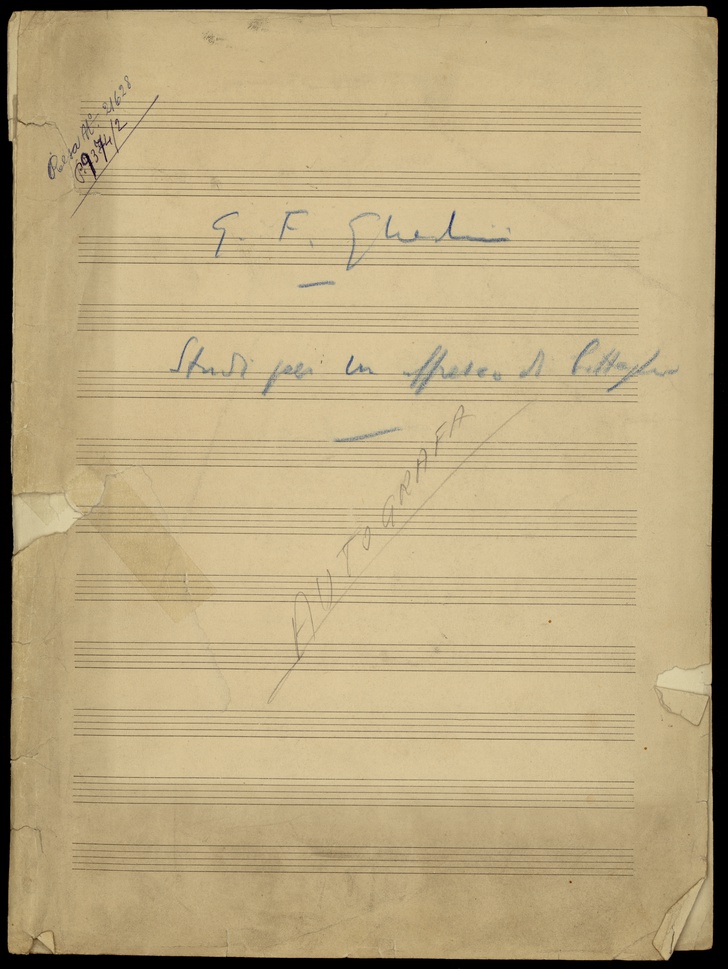 Resa N.º 21628
P. 9374/2
G. F. Ghedini
Studi per un affresco di battaglia
AUTOGRAFA